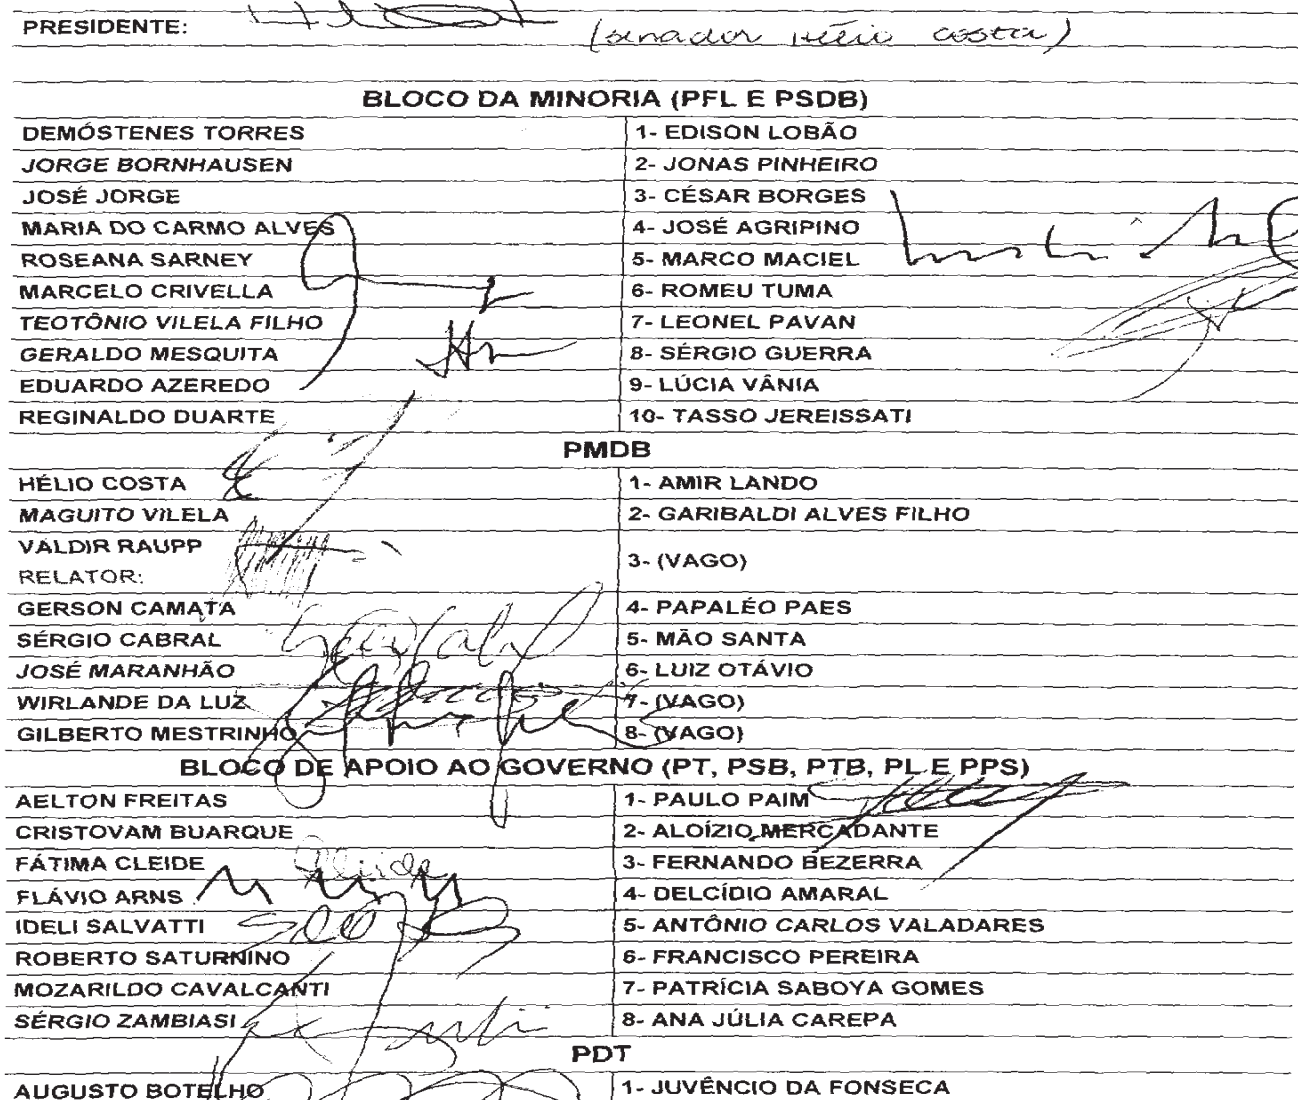 PRESIDENTE: (senador Hélio Costa)
BLOCO DA MINORIA (PFL E PSDB)
DEMÓSTENES TORRES 1- EDISON LOBÃO
JORGE BORNHAUSEN 2- JONAS PINHEIRO
JOSÉ JORGE 3- CÉSAR BORGES
MARIA DO CARMO ALVES 4- JOSÉ AGRIPINO
ROSEANA SARNEY 5- MARCO MACIEL
MARCELO CRIVELLA 6- ROMEU TUMA
TEOTÔNIO VILELA FILHO 7- LEONEL PAVAN
GERALDO MESQUITA 8- SÉRGIO GUERRA
EDUARDO AZEREDO 9- LÚCIA VÂNIA
REGINALDO DUARTE 10- TASSO JEREISSATI
PMDB
HÉLIO COSTA 1- AMIR LANDO
MAGUITO VILELA 2- GARIBALDI ALVES FILHO
VALDIR RAUPP
RELATOR: 3- (VAGO)
GERSON CAMATA 4- PAPALÉO PAES
SÉRGIO CABRAL 5- MÃO SANTA
JOSÉ MARANHÃO 6- LUIZ OTÁVIO
WIRLANDE DA LUZ 7- (VAGO)
GILBERTO MESTRINHO 8- (VAGO)
BLOCO DE APOIO AO GOVERNO (PT, PSB, PTB, PL E PPS)
AELTON FREITAS 1- PAULO PAIM
CRISTOVAM BUARQUE 2- ALOÍZIO MERCADANTE
FÁTIMA CLEIDE 3- FERNANDO BEZERRA
FLÁVIO ARNS 4- DELCÍDIO AMARAL
IDELI SALVATTI 5- ANTÔNIO CARLOS VALADARES
ROBERTO SATURNINO 6- FRANCISCO PEREIRA
MOZARILDO CAVALCANTI 7- PATRÍCIA SABOYA GOMES
SÉRGIO ZAMBIASI 8- ANA JÚLIA CAREPA
PDT
AUGUSTO BOTELHO 1- JUVÊNCIO DA FONSECA